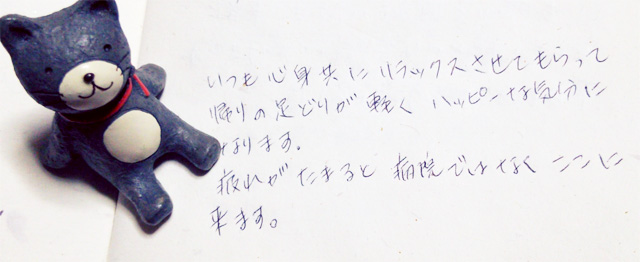 いつも心身共にリラックスさせてもらって
帰りの足どりが軽く ハッピーな気分に
なります.
疲れがたまると 病院ではなく ここに
来ます。